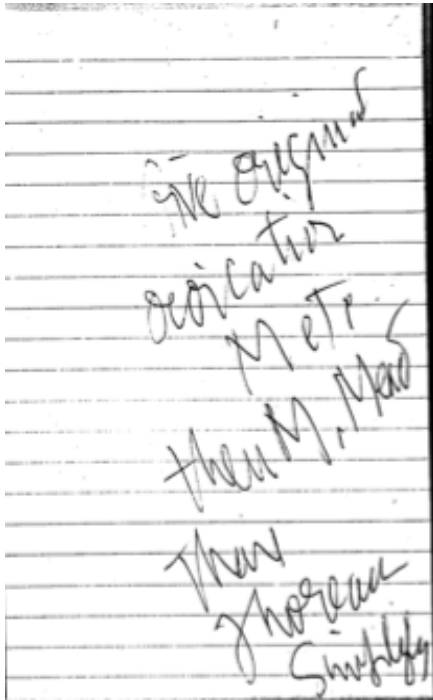 original
dedication
then M. Mead
Then
Thoreau
Simplify